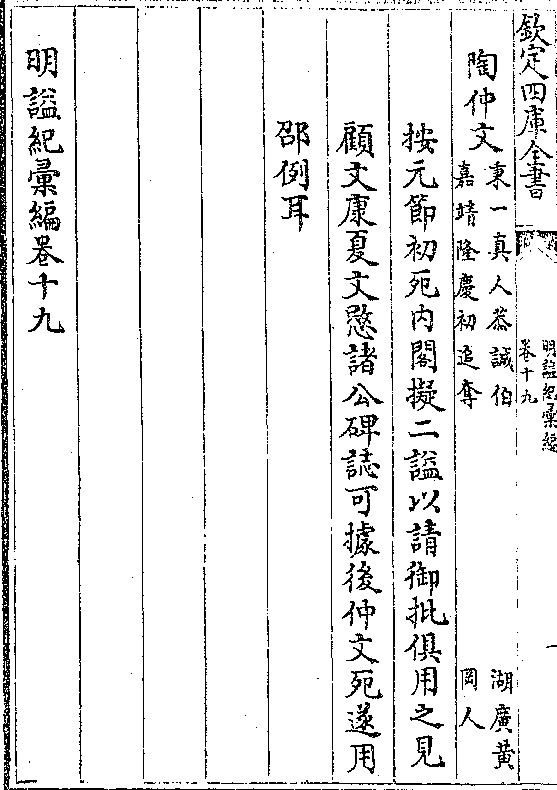 欽定四庫全書
明謚紀彙編
卷十九
陶仲文
秉一真人恭誠伯
嘉靖隆慶初追奪
湖廣黄
岡人
按元節初死内閣擬二謚以請御批俱用之見
顧文康夏文愍諸公碑誌可據後仲文死遂用
邵例耳
明謚紀彙編卷十九